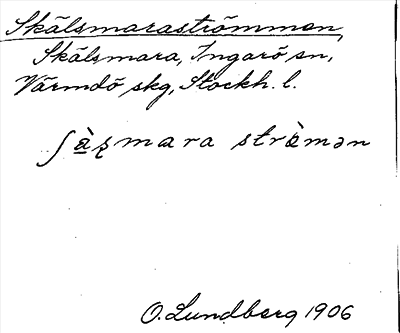 Skälsmaraströmmen,
Skälsmara, Ingarö sn,
Värmdö skg, Stockh. l.
mara
O. Lundberg 1906